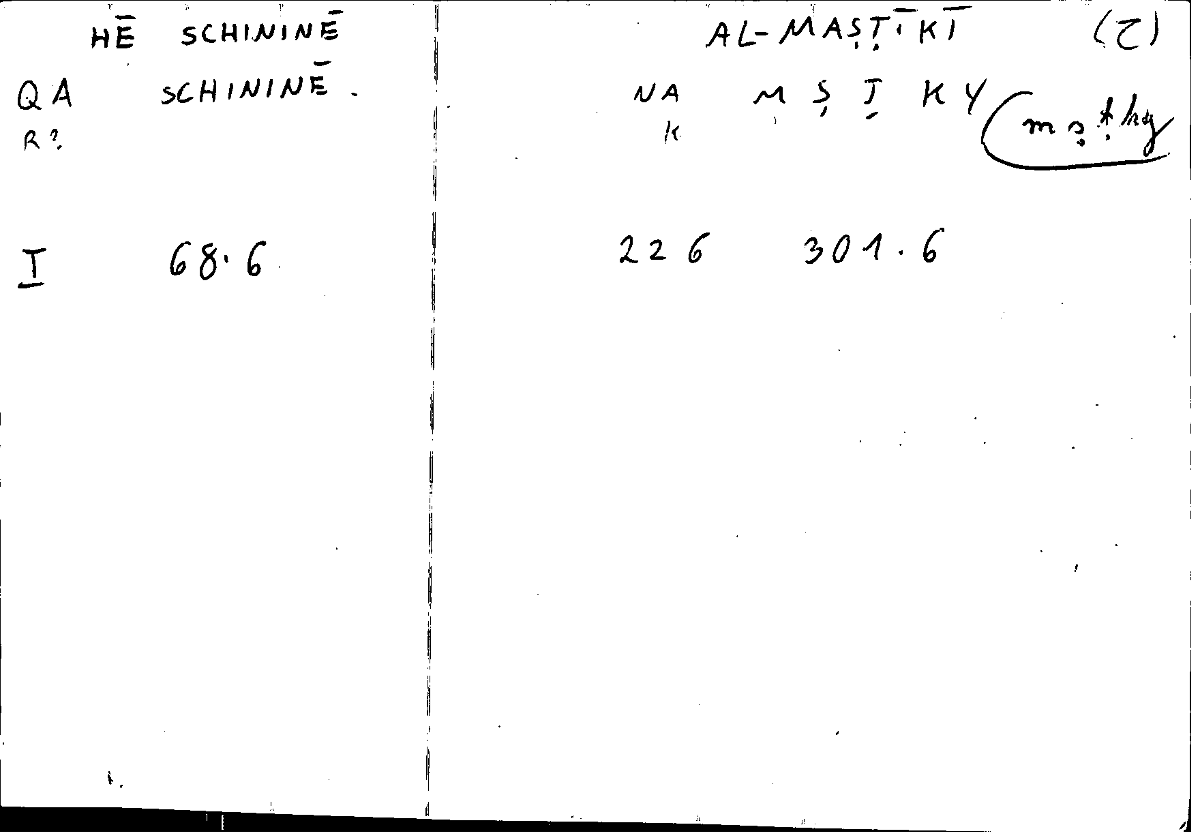 HĒ SCHININĒ
QA SCHININĒ.
R?
I 68.6
AL-MAṢṬĪKĪ (τ)
NA M Ṣ Ṭ K Y
K mṣṭky
226 301.6